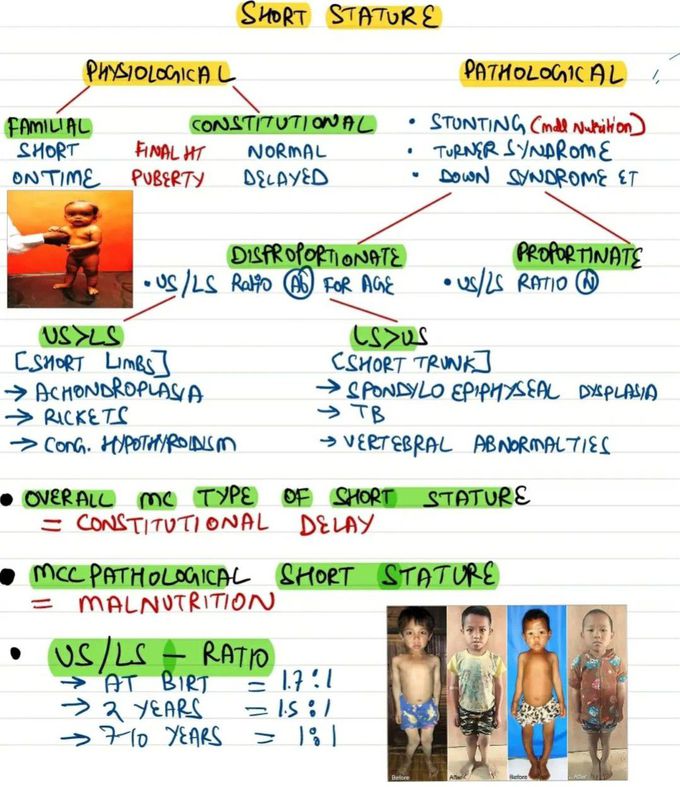 SHORT STATURE
PHYSIOLOGICAL
PATHOLOGICAL
FAMILIAL
CONSTITUTIONAL
SHORT FINAL HT NORMAL
ONTIME PUBERTY DELAYED
• STUNTING (mall Nutrition)
• TURNER SYNDROME
• DOWN SYNDROME ET
DISPROPORTIONATE
• US/LS Ratio (Ab) FOR AGE
PROPORTINATE
• US/LS RATIO (N)
US>LS
[SHORT LIMBS]
→ ACHONDROPLASIA
→ RICKETS
→ CONG. HYPOTHYROIDISM
LS>US
[SHORT TRUNK]
→ SPONDYLO EPIPHYSEAL DYSPLASIA
→ TB
→ VERTEBRAL ABNORMALTIES
• OVERALL MC TYPE OF SHORT STATURE
= CONSTITUTIONAL DELAY
• MCC PATHOLOGICAL SHORT STATURE
= MALNUTRITION
• US/LS - RATIO
→ AT BIRT = 1.7:1
→ 2 YEARS = 1.5:1
→ 7-10 YEARS = 1:1
Before After Before After